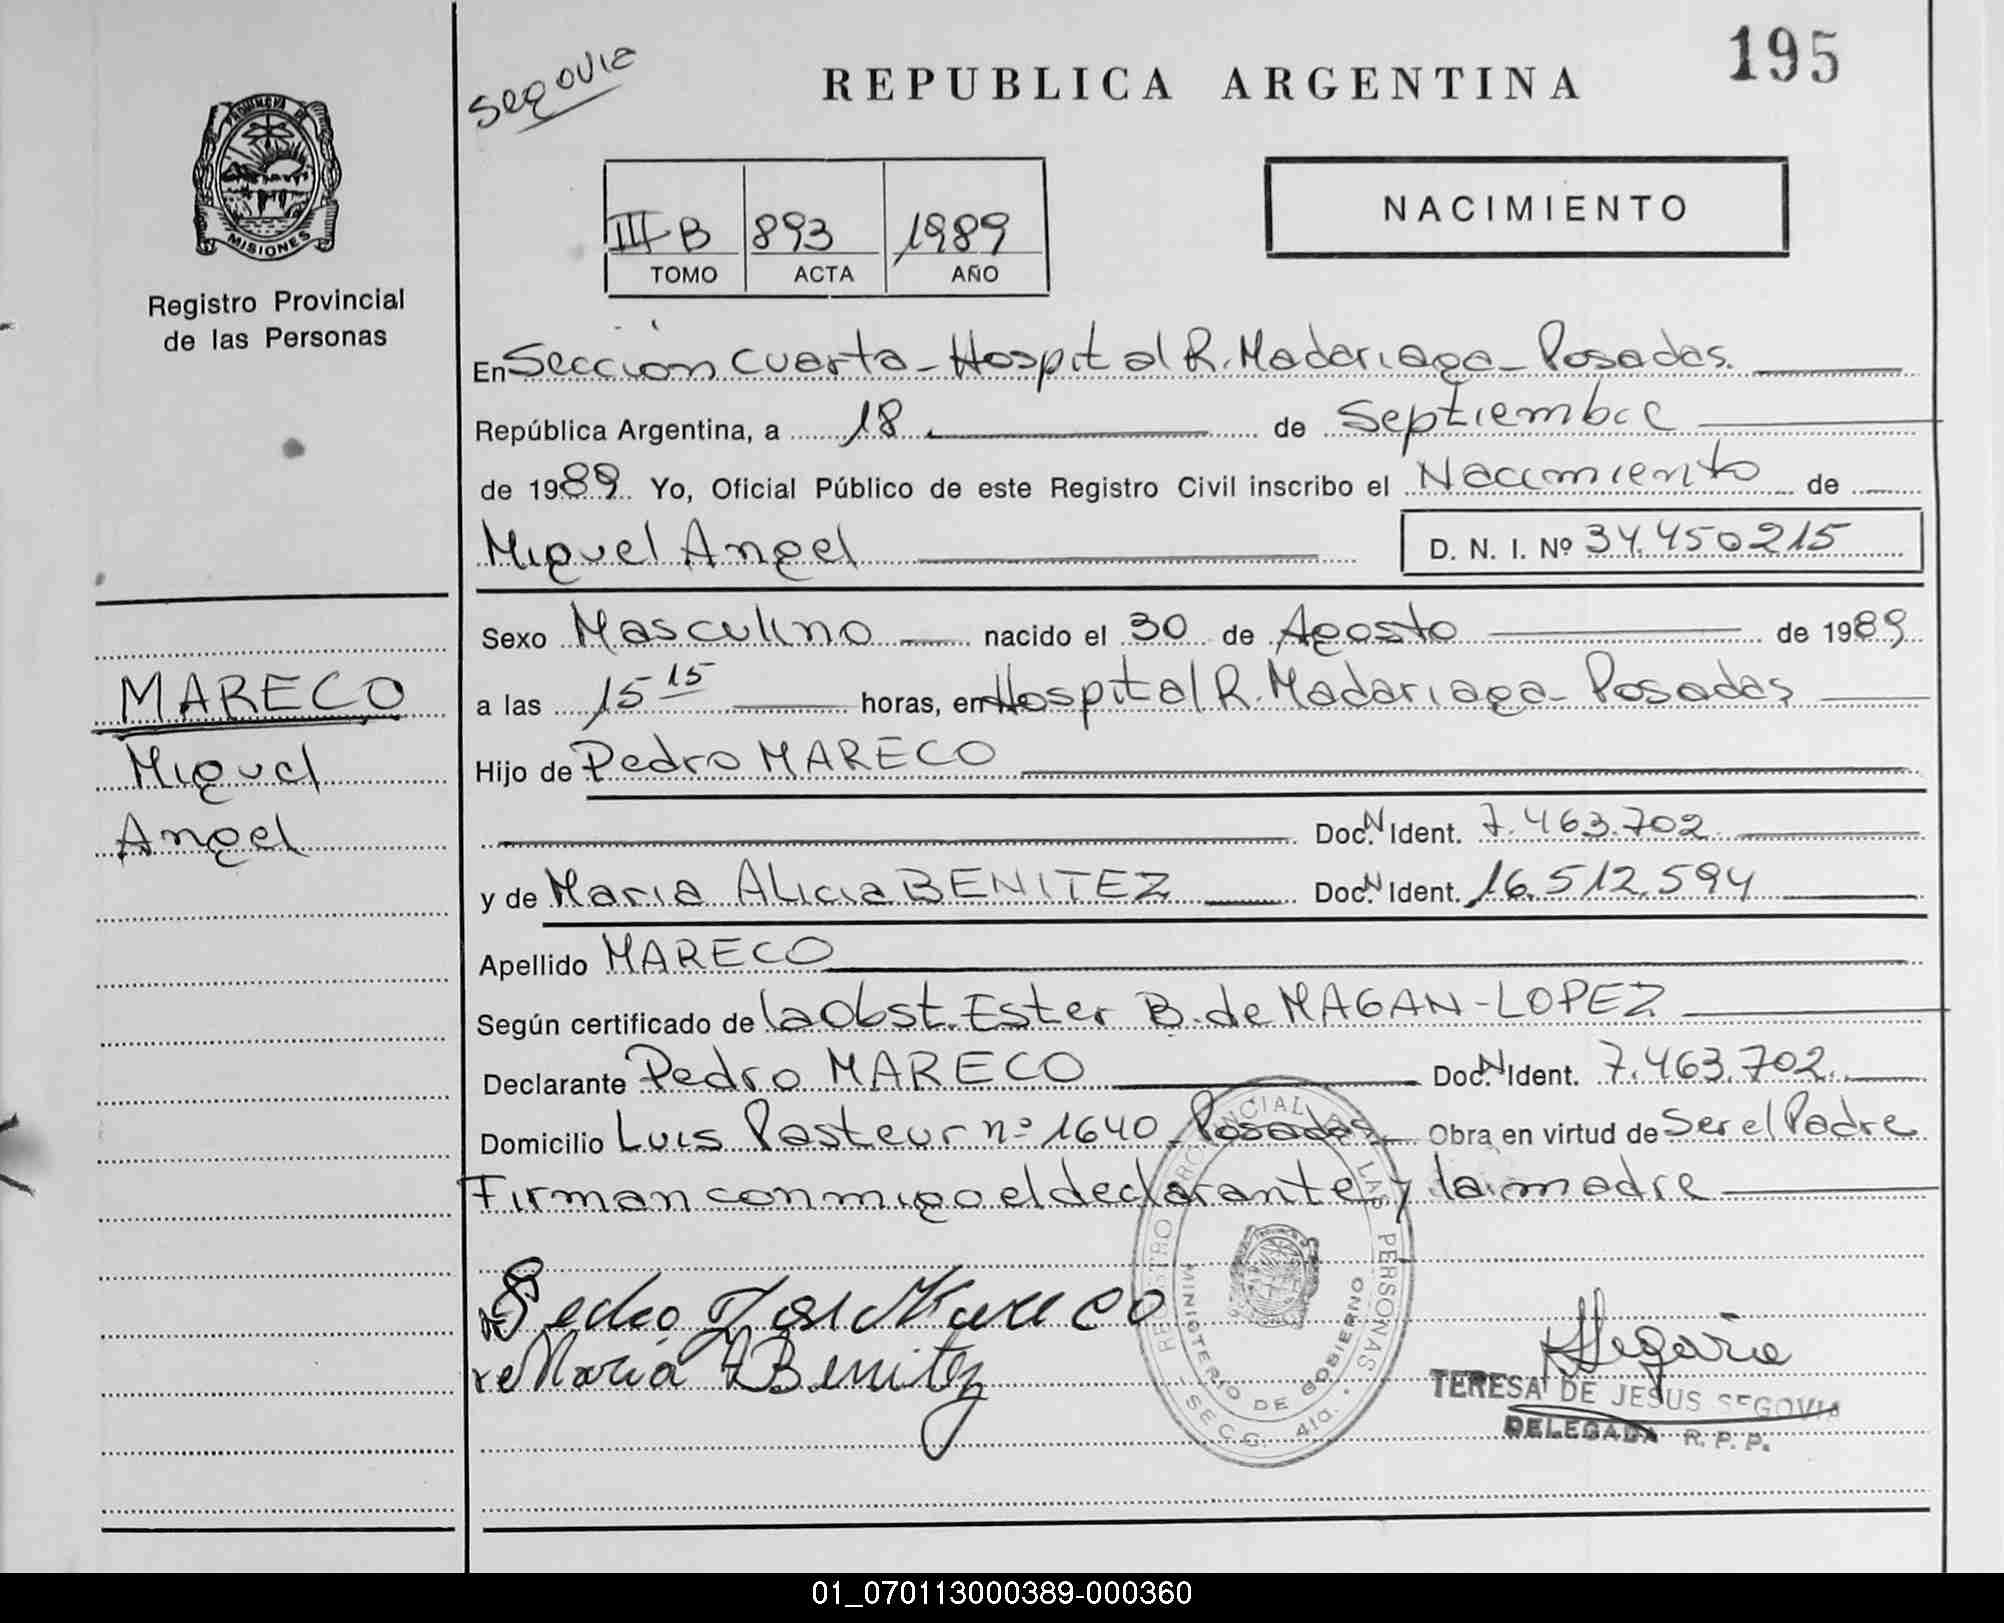 195
Segovia
REPUBLICA ARGENTINA
PROVINCIA DE
MISIONES
Registro Provincial
de las Personas
III B 893 1989
TOMO ACTA AÑO
NACIMIENTO
En Sección Cuarta - Hospital R. Madariaga - Posadas.
República Argentina, a 18 de Septiembre
de 1989. Yo, Oficial Público de este Registro Civil inscribo el Nacimiento de
Miguel Angel D. N. I. Nº 34.450215
Sexo Masculino nacido el 30 de Agosto de 1989
MARECO
Miguel
Angel
a las 15 15 horas, en Hospital R. Madariaga - Posadas
Hijo de Pedro MARECO
Doc. N Ident. 7.463.702
y de Maria Alicia BENITEZ Doc. N Ident. 16.512.594
Apellido MARECO
Según certificado de la Obst. Ester B. de MAGAN-LOPEZ
Declarante Pedro MARECO Doc. N Ident. 7.463.702
Domicilio Luis Pasteur nº 1640 - Posadas Obra en virtud de Ser el Padre
Firman conmigo el declarante y la madre
Pedro José Mareco
Maria A Benitez
REGISTRO PROVINCIAL DE LAS PERSONAS
MINISTERIO DE GOBIERNO
SECC. 4ta.
TERESA DE JESUS SEGOVIA
DELEGADA R. P. P.
01_070113000389-000360